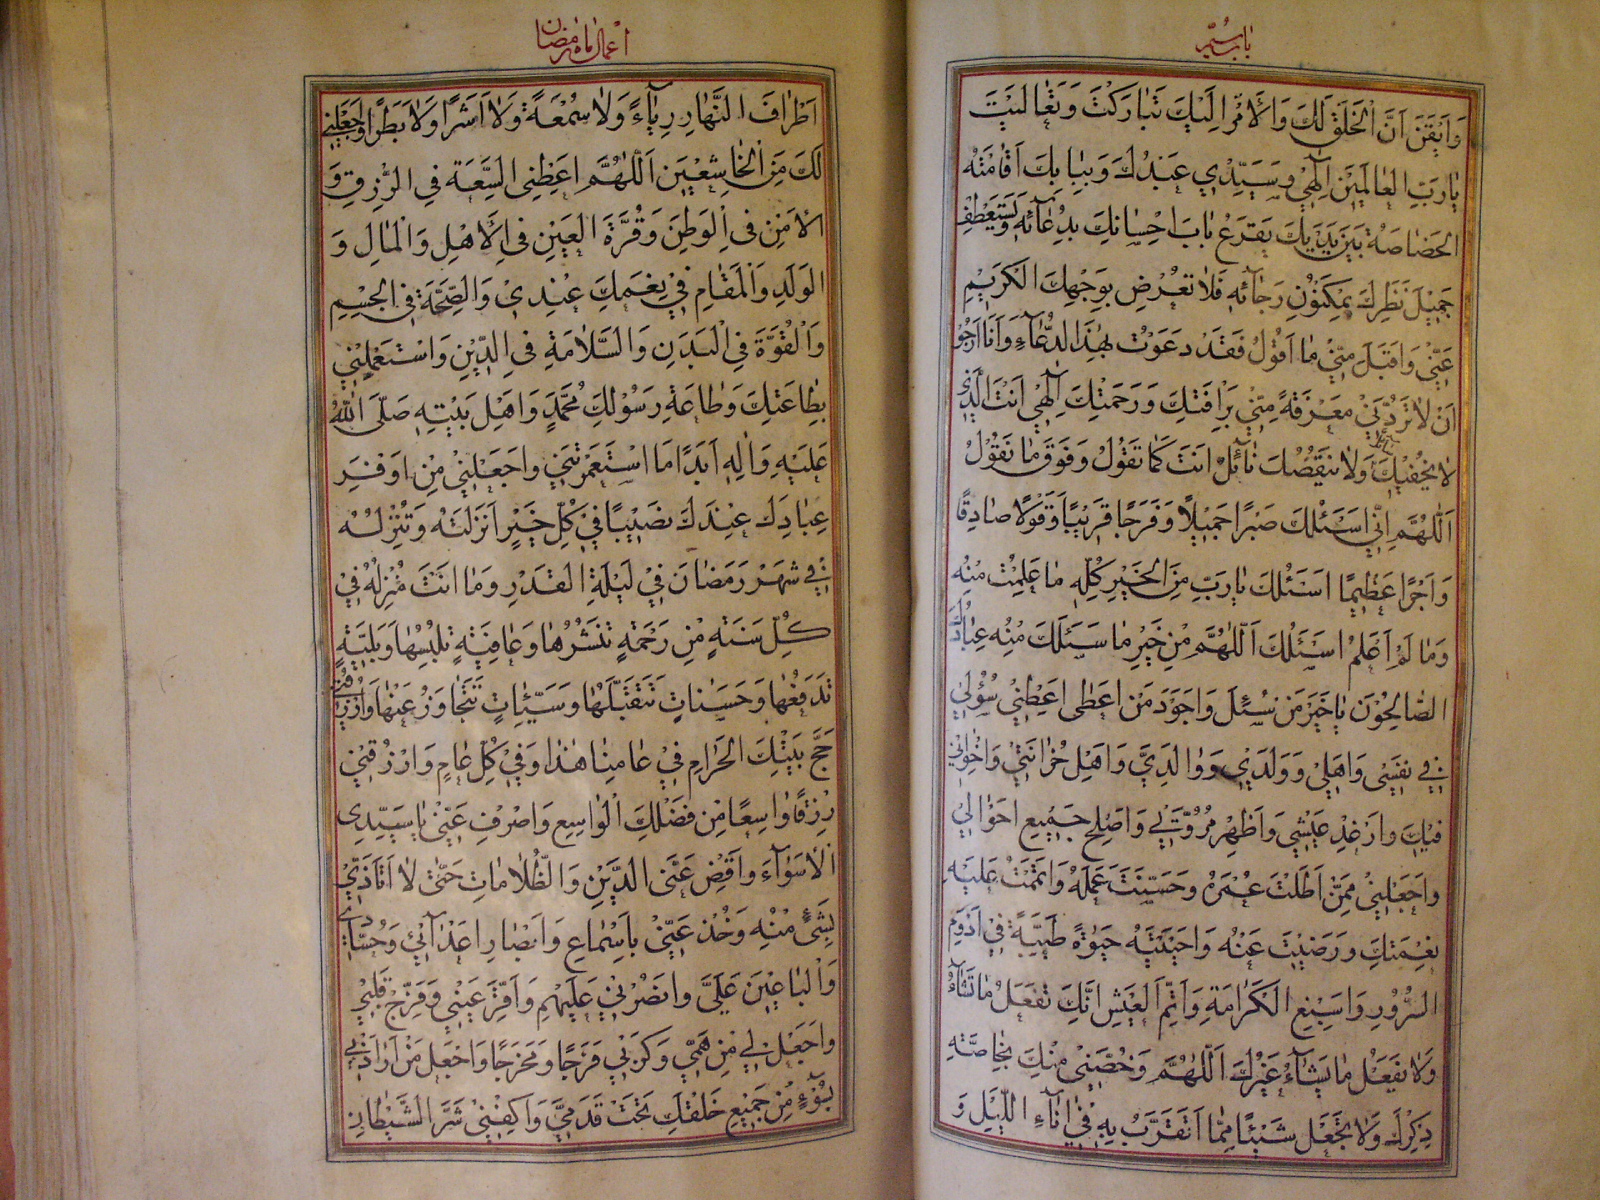 باب سیّم
وَاَيْقَنَ اَنَّ الْخَلْقَ لَكَ وَالْاَمْرَ اِلَيْكَ تَبَارَكْتَ وَتَعَالَيْتَ
يَا رَبَّ الْعَالَمِيْنَ اِلٰهِيْ وَسَيِّدِيْ عَبْدُكَ وَبِبَابِكَ اَقَامَتْهُ
الْخَصَاصَةُ بَيْنَ يَدَيْكَ يَقْرَعُ بَابَ اِحْسَانِكَ بِدُعَائِهِ وَيَسْتَعْطِفُ
جَمِيْلَ نَظَرِكَ بِمَكْنُوْنِ رَجَائِهِ فَلَا تُعْرِضْ بِوَجْهِكَ الْكَرِيْمِ
عَنِّيْ وَاقْبَلْ مِنِّيْ مَا اَقُوْلُ فَقَدْ دَعَوْتُ بِهٰذَا الدُّعَاءِ وَاَنَا اَرْجُو
اَنْ لَا تَرُدَّنِيْ مَعْرِفَةً مِنِّيْ بِرَأْفَتِكَ وَرَحْمَتِكَ اِلٰهِيْ اَنْتَ الَّذِيْ
لَا يُحْفِيْكَ سَائِلٌ وَلَا يَنْقُصُكَ نَائِلٌ اَنْتَ كَمَا تَقُوْلُ وَفَوْقَ مَا نَقُوْلُ
اَللّٰهُمَّ اِنِّيْ اَسْئَلُكَ صَبْرًا جَمِيْلًا وَفَرَجًا قَرِيْبًا وَقَوْلًا صَادِقًا
وَاَجْرًا عَظِيْمًا اَسْئَلُكَ يَا رَبِّ مِنَ الْخَيْرِ كُلِّهِ مَا عَلِمْتُ مِنْهُ
وَمَا لَمْ اَعْلَمْ اَسْئَلُكَ اَللّٰهُمَّ مِنْ خَيْرِ مَا سَئَلَكَ مِنْهُ عِبَادُكَ
الصَّالِحُوْنَ يَا خَيْرَ مَنْ سُئِلَ وَاَجْوَدَ مَنْ اَعْطٰى اَعْطِنِيْ سُؤْلِيْ
فِيْ نَفْسِيْ وَاَهْلِيْ وَوَلَدِيْ وَوَالِدَيَّ وَاَهْلِ حُزَانَتِيْ وَاِخْوَانِيْ
فِيْكَ وَاَرْغِدْ عَيْشِيْ وَاَظْهِرْ مُرُوَّتِيْ وَاَصْلِحْ جَمِيْعَ اَحْوَالِيْ
وَاجْعَلْنِيْ مِمَّنْ اَطَلْتَ عُمُرَهُ وَحَسَّنْتَ عَمَلَهُ وَاَتْمَمْتَ عَلَيْهِ
نِعْمَتَكَ وَرَضِيْتَ عَنْهُ وَاَحْيَيْتَهُ حَيٰوةً طَيِّبَةً فِيْ اَدْوَمِ
السُّرُوْرِ وَاَسْبَغِ الْكَرَامَةِ وَاَتَمِّ الْعَيْشِ اِنَّكَ تَفْعَلُ مَا تَشَاءُ
وَلَا يَفْعَلُ مَا يَشَاءُ غَيْرُكَ اَللّٰهُمَّ وَخُصَّنِيْ مِنْكَ بِخَاصَّةِ
ذِكْرِكَ وَلَا تَجْعَلْ شَيْئًا مِمَّا اَتَقَرَّبُ بِهِ فِيْ اٰنَاءِ اللَّيْلِ وَ
اعمال ماه رمضان
اَطْرَافَ النَّهَارِ رِيَاءً وَلَا سُمْعَةً وَلَا اَشَرًا وَلَا بَطَرًا وَاجْعَلْنِيْ
لَكَ مِنَ الْخَاشِعِيْنَ اَللّٰهُمَّ اَعْطِنِي السَّعَةَ فِي الرِّزْقِ وَ
الْاَمْنَ فِي الْوَطَنِ وَقُرَّةَ الْعَيْنِ فِي الْاَهْلِ وَالْمَالِ وَ
الْوَلَدِ وَالْمَقَامِ فِيْ نِعَمِكَ عِنْدِيْ وَالصِّحَّةَ فِي الْجِسْمِ
وَالْقُوَّةَ فِي الْبَدَنِ وَالسَّلَامَةَ فِي الدِّيْنِ وَاسْتَعْمِلْنِيْ
بِطَاعَتِكَ وَطَاعَةِ رَسُوْلِكَ مُحَمَّدٍ وَاَهْلِ بَيْتِهِ صَلَّى اللهُ
عَلَيْهِ وَاٰلِهِ اَبَدًا مَا اسْتَعْمَرْتَنِيْ وَاجْعَلْنِيْ مِنْ اَوْفَرِ
عِبَادِكَ عِنْدَكَ نَصِيْبًا فِيْ كُلِّ خَيْرٍ اَنْزَلْتَهُ وَتُنْزِلُهُ
فِيْ شَهْرِ رَمَضَانَ فِيْ لَيْلَةِ الْقَدْرِ وَمَا اَنْتَ مُنْزِلُهُ فِيْ
كُلِّ سَنَةٍ مِنْ رَحْمَةٍ تَنْشُرُهَا وَعَافِيَةٍ تُلْبِسُهَا وَبَلِيَّةٍ
تَدْفَعُهَا وَحَسَنَاتٍ تَتَقَبَّلُهَا وَسَيِّئَاتٍ تَتَجَاوَزُ عَنْهَا وَارْزُقْنِيْ
حَجَّ بَيْتِكَ الْحَرَامِ فِيْ عَامِنَا هٰذَا وَفِيْ كُلِّ عَامٍ وَارْزُقْنِيْ
رِزْقًا وَاسِعًا مِنْ فَضْلِكَ الْوَاسِعِ وَاصْرِفْ عَنِّيْ يَا سَيِّدِيْ
الْاَسْوَاءَ وَاقْضِ عَنِّي الدَّيْنَ وَالظُّلَامَاتِ حَتّٰى لَا اَتَاَذّٰى
بِشَيْءٍ مِنْهُ وَخُذْ عَنِّيْ بِاَسْمَاعِ وَاَبْصَارِ اَعْدَائِيْ وَحُسَّادِيْ
وَالْبَاغِيْنَ عَلَيَّ وَانْصُرْنِيْ عَلَيْهِمْ وَاَقِرَّ عَيْنِيْ وَفَرِّحْ قَلْبِيْ
وَاجْعَلْ لِيْ مِنْ هَمِّيْ وَكَرْبِيْ فَرَجًا وَمَخْرَجًا وَاجْعَلْ مَنْ اَرَادَنِيْ
بِسُوْءٍ مِنْ جَمِيْعِ خَلْقِكَ تَحْتَ قَدَمَيَّ وَاكْفِنِيْ شَرَّ الشَّيْطَانِ